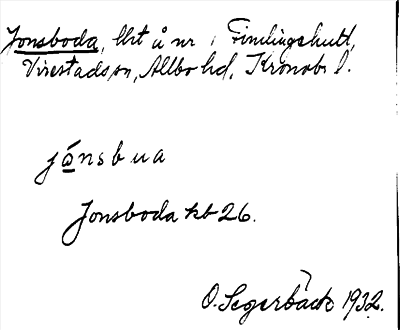 Jonsboda, lht å nr 1 Femlingehult,
Virestads sn, Allbo hd, Kronob. l.
jo̲nsbua
Jonsboda kb 26.
O. Segerbäck 1932.